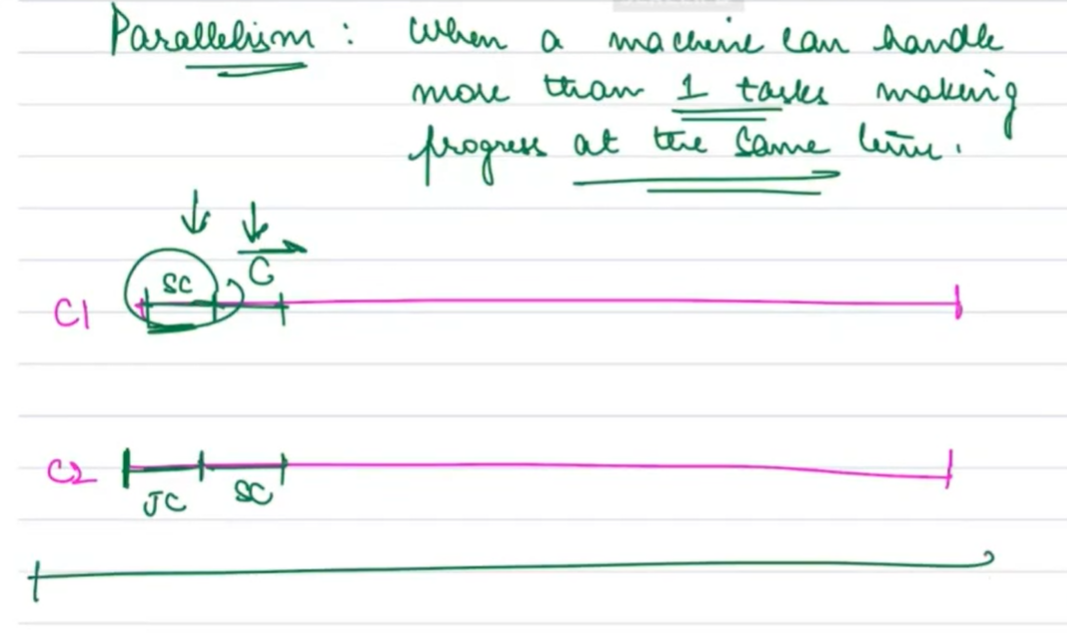 Parallelism : When a machine can handle
more than 1 tasks making
progress at the same time.
SC C
C1
C2
JC SC